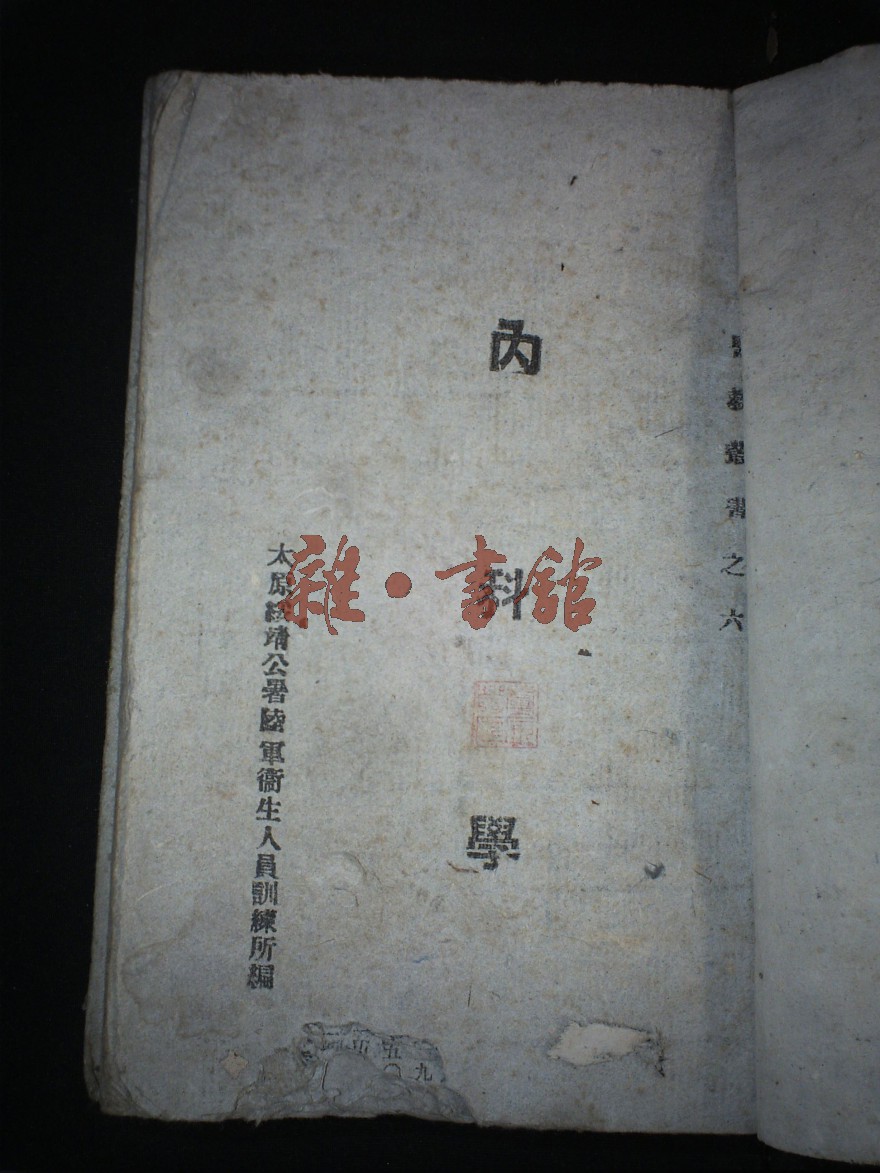 醫教叢書之六
內科學
太原綏靖公署陸軍衞生人員訓練所編
雜·書館
五
九